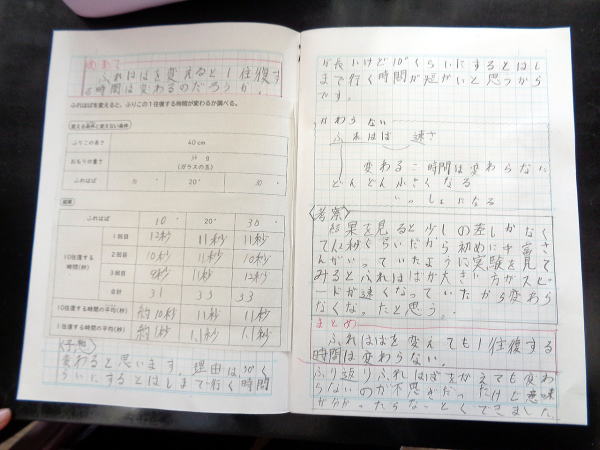 めあて
ふれはばを変えると1往復す
る時間は変わるのだろうか。
ふれはばを変えると、ふりこの1往復する時間が変わるか調べる。
変える条件と変えない条件
ふりこの長さ 40cm
おもりの重さ g
(ガラスの玉)
ふれはば ° 20° 30 °
結果
ふれはば 10 ° 20° 30 °
10往復する時間(秒)
1回目 12秒 11秒 11秒
2回目 10秒 11秒 10秒
3回目 9秒 11秒 12秒
合計 31 33 33
10往復する時間の平均(秒) 約10秒 11秒 11秒
1往復する時間の平均(秒) 約1秒 1.1秒 1.1秒
〈予想〉
変わると思います。理由は30°く
らいにするとはしまで行く時間
が長いけど10°くらいにするとはし
まで行く時間が短かいと思うから
です。
かわらない
ふれはば 速さ
変わる:時間は変わらない
どんどん小さくなる
いっしょになる
〈考察〉
結果を見ると少しの差しかなく
て1、2秒ぐらいだから初めに
がいっていたように実験を見て
みるとふれはばが大きい方がスピ
ードが速くなっていたから変わら
なくなったと思う。
まとめ
ふれはばを変えても1往復する
時間は変わらない。
ふり返りふれはばをかえても変わ
らないのが不思ぎだったけど意味
が分かったらなっとくできました